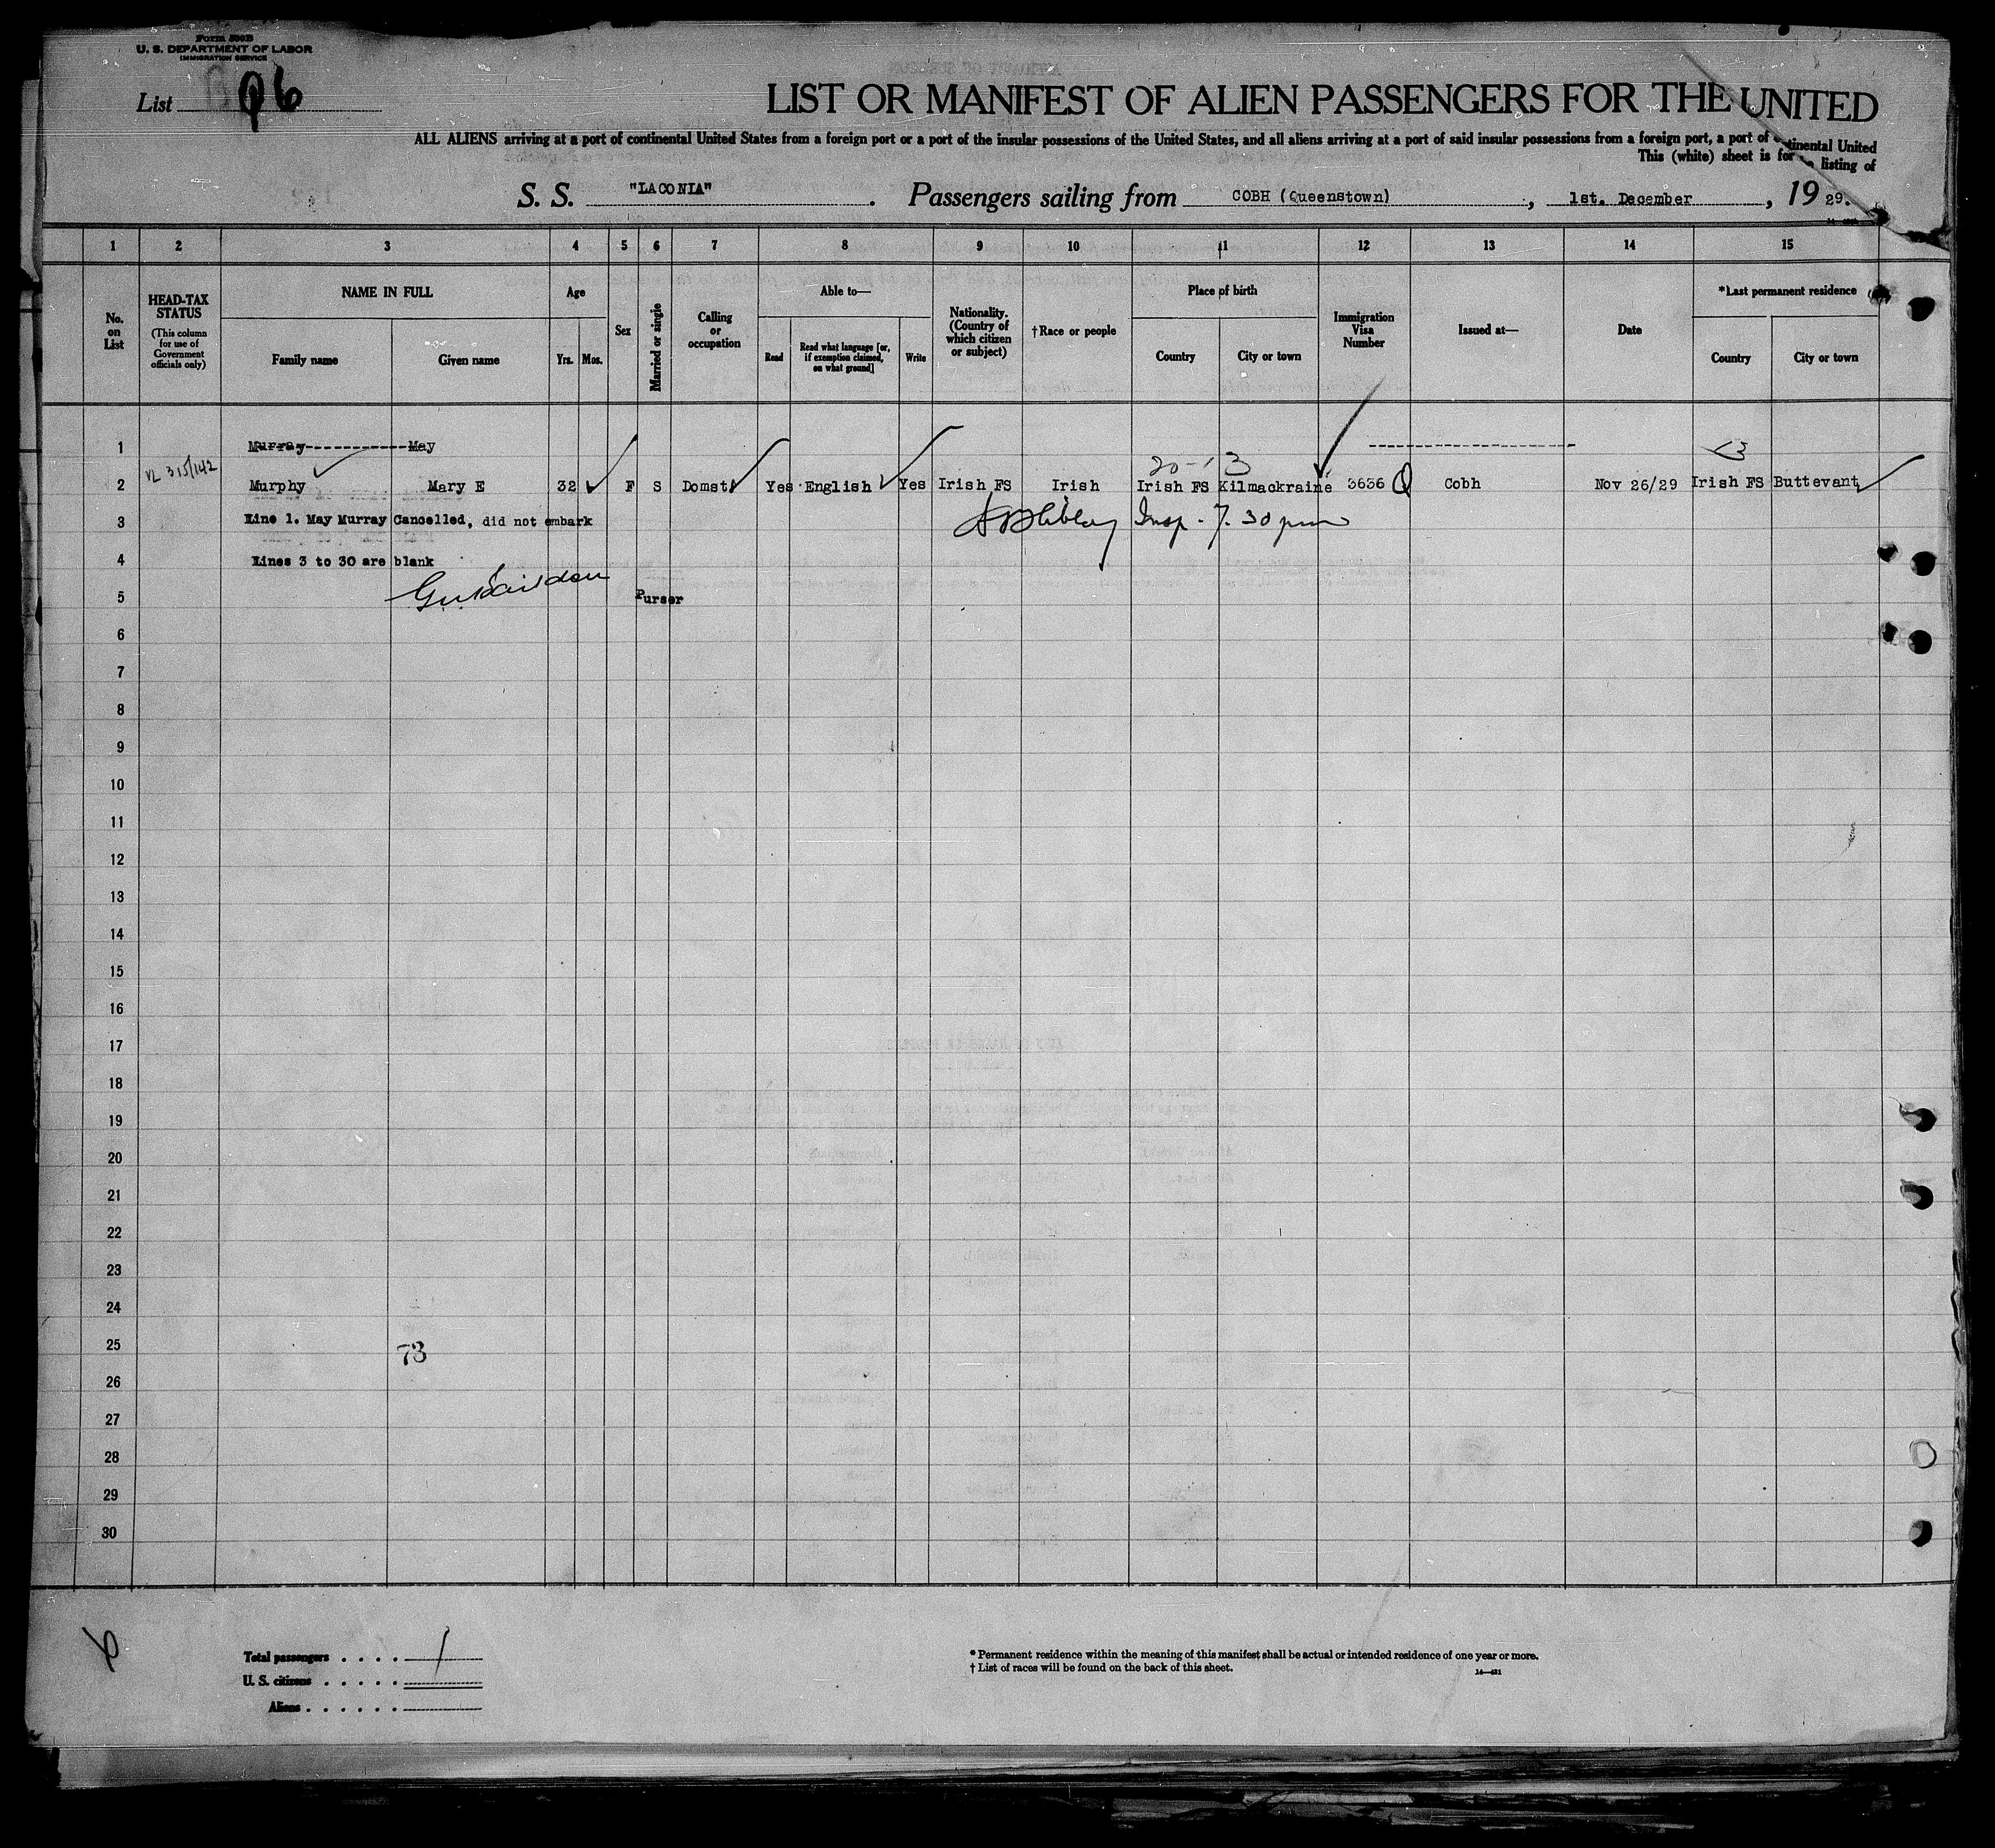 Form 500B
U. S. DEPARTMENT OF LABOR
IMMIGRATION SERVICE
List 96
LIST OR MANIFEST OF ALIEN PASSENGERS FOR THE UNITED
ALL ALIENS arriving at a port of continental United States from a foreign port or a port of the insular possessions of the United States, and all aliens arriving at a port of said insular possessions from a foreign port, a port of continental United
This (white) sheet is for listing of
S. S. "LACONIA". Passengers sailing from COBH (Queenstown), 1st. December, 19 29.
1 2 3 4 5 6 7 8 9 10 11 12 13 14 15
No. on List
HEAD-TAX STATUS
(This column for use of Government officials only)
NAME IN FULL
Family name
Given name
Age
Yrs.
Mos.
Sex
Married or single
Calling or occupation
Able to—
Read
Read what language [or, if exemption claimed, on what ground]
Write
Nationality. (Country of which citizen or subject)
†Race or people
Place of birth
Country
City or town
Immigration Visa Number
Issued at—
Date
*Last permanent residence
Country
City or town
1 Murray May
20-13
2 Murphy Mary E 32 F S Domst Yes English Yes Irish FS Irish Irish FS Kilmackraine 3636 Q Cobh Nov 26/29 Irish FS Buttevant
3 Line 1. May Murray Cancelled, did not embark Insp. 7.30 pm
4 Lines 3 to 30 are blank
5 Purser
6
7
8
9
10
11
12
13
14
15
16
17
18
19
20
21
22
23
24
25 73
26
27
28
29
30
Total passengers . . . . 1
U. S. citizens . . . . .
Aliens . . . . . .
* Permanent residence within the meaning of this manifest shall be actual or intended residence of one year or more.
† List of races will be found on the back of this sheet.